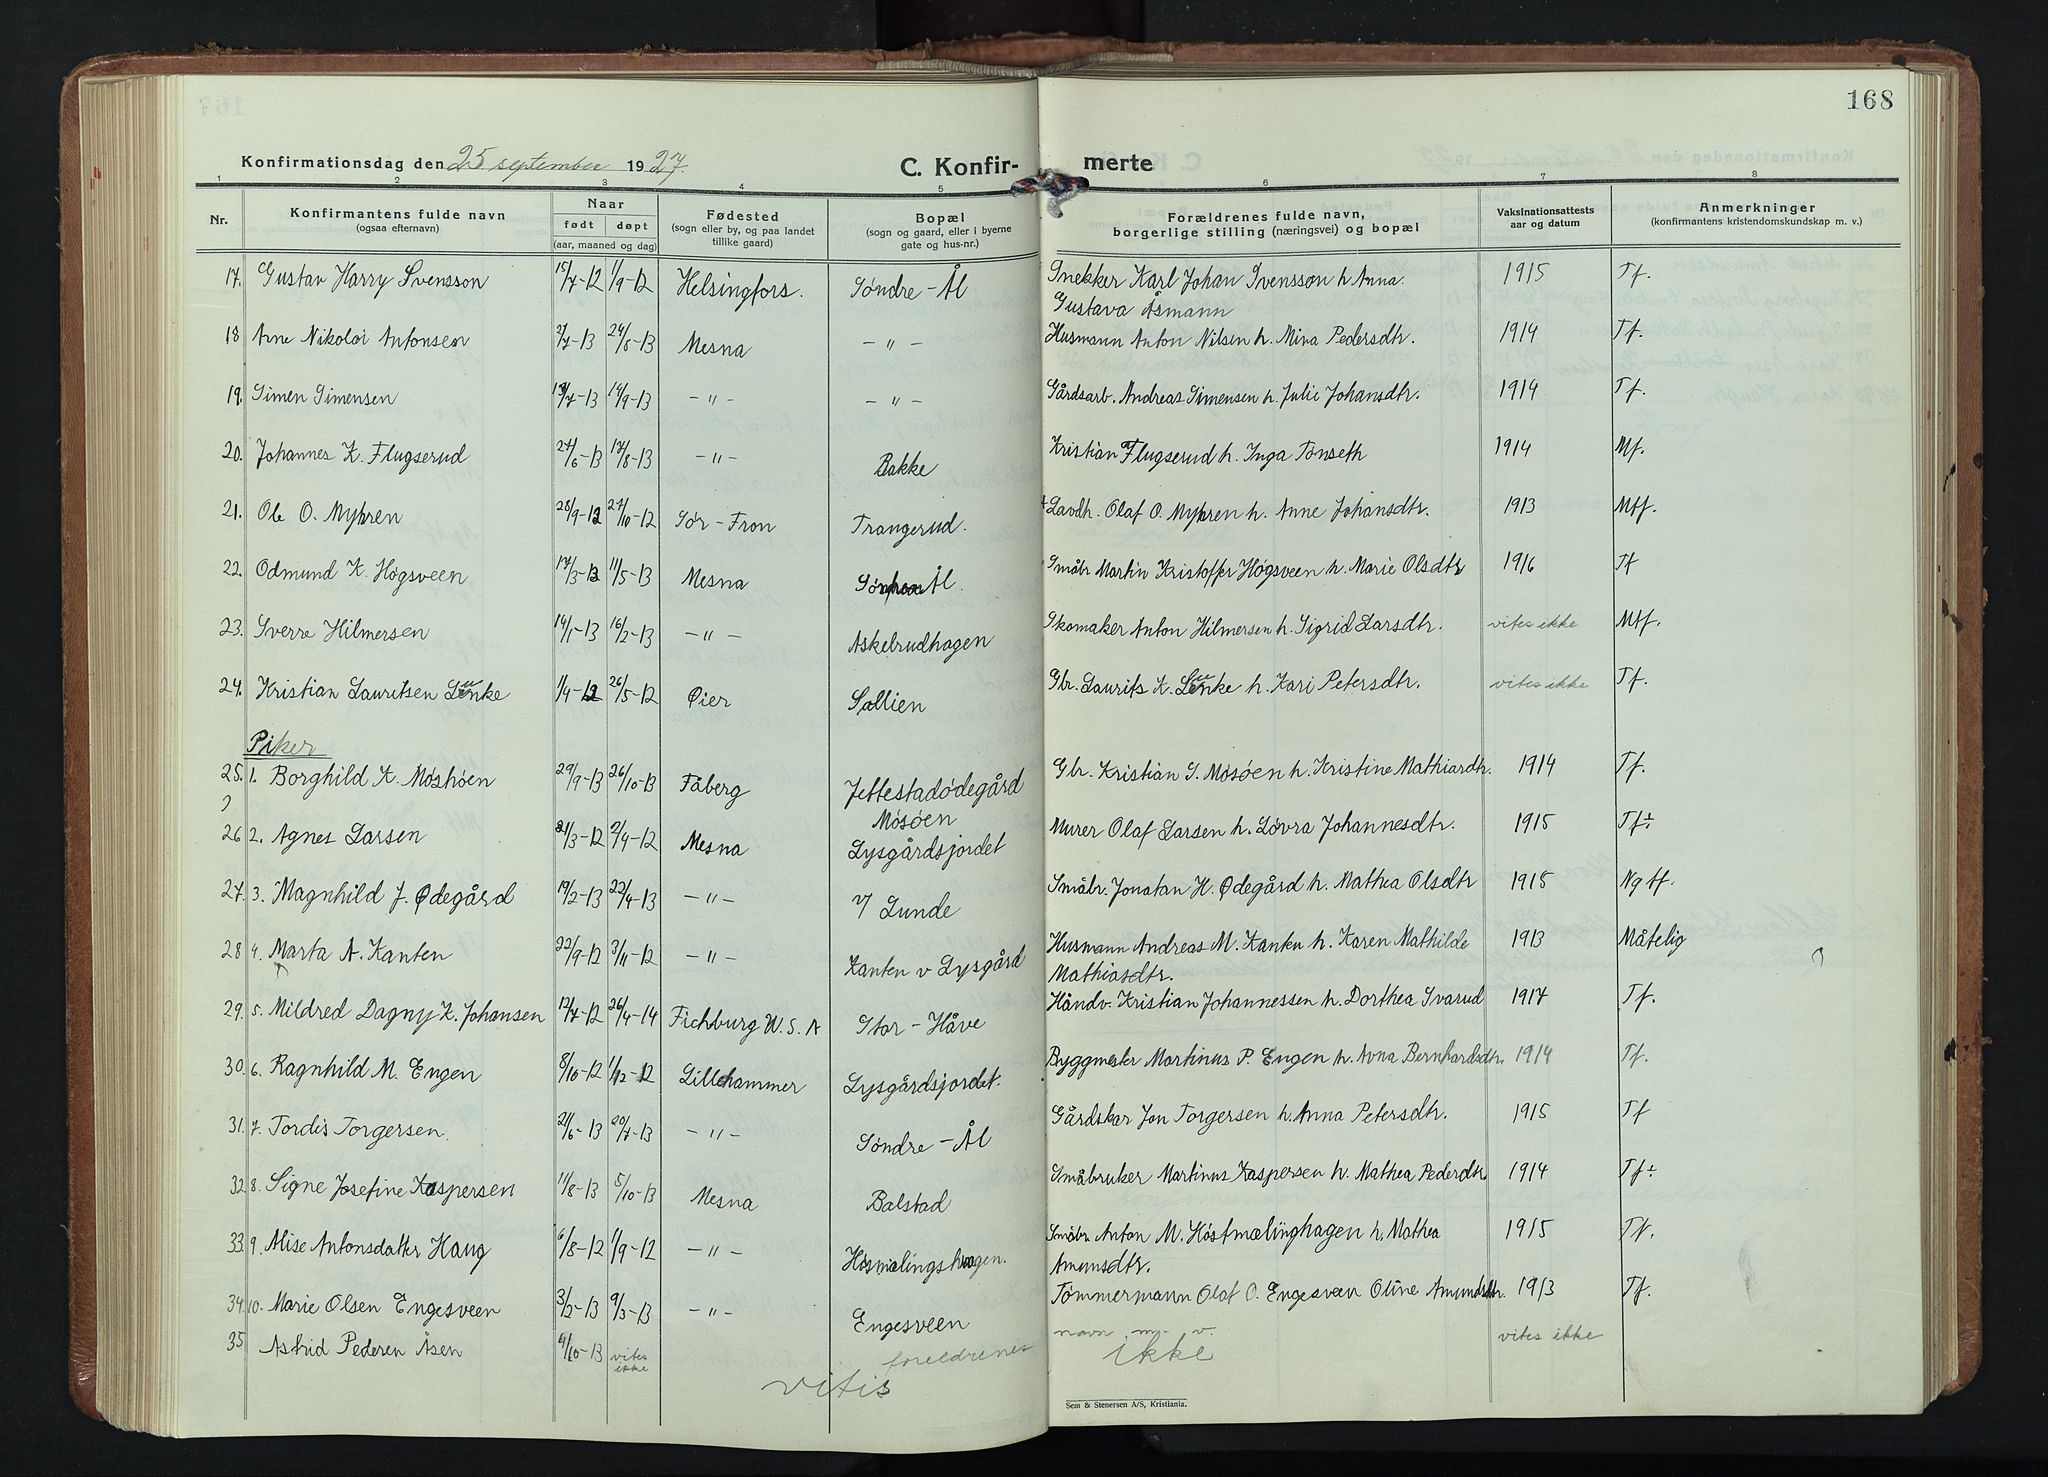 168
Konfirmationsdag den 25 september 1927.
C. Konfir- merte
1 2 3 4 5 6 7 8
Nr. Konfirmantens fulde navn (ogsaa efternavn) Naar født døpt (aar, maaned og dag) Fødested (sogn eller by, og paa landet tillike gaard) Bopæl (sogn og gaard, eller i byerne gate og hus-nr.) Forældrenes fulde navn, borgerlige stilling (næringsvei) og bopæl Vaksinationsattests aar og datum Anmerkninger (konfirmantens kristendomskundskap m. v.)
17. Gustav Harry Svensson 15/7-12 1/9-12 Helsingfors. Søndre-Ål Snekker Karl Johan Svensson h. Anna 1915 Tf.
Gustava Åsmann
18 Arne Nikolai Antonsen 2/7-13 24/8-13 Mesna -"- Husmann Anton Nilsen h. Mina Pedersdtr. 1914 Tf.
19. Simen Simensen 13/7-13 14/9-13 -"- -"- Gårdsarb. Andreas Simensen h. Julie Johansdtr. 1914 Tf.
20. Johannes K. Flugserud 27/6-13 17/8-13 -"- Bakke Kristian Flugserud h. Inga Tønseth 1914 Mf.
21. Ole O. Myhren 28/9-12 27/10-12 Sør-Fron Trangerud. Olaf O. Myhren h. Anne Johansdtr. 1913 Mtf.
22. Odmund K. Høgsveen 17/3-13 11/5-13 Mesna Søndre Ål. Småbr Martin Kristoffer Høgsveen h. Marie Olsdtr 1916 Tf
23. Sverre Hilmersen 14/1-13 16/2-13 -"- Askelrudhagen Skomaker Anton Hilmersen h. Sigrid Larsdtr. vites ikke Mtf.
24. Kristian Lauritsen Lunke 1/4-12 26/5-12 Øier Sollien Gbr. Laurits K. Lunke h. Kari Petersdtr. vites ikke Tf.
Piker
25. 1. Borghild K. Moshøen 29/9-13 26/10-13 Fåberg Jettestadødegård Gbr. Kristian S. Mosøen h. Kristine Mathiasdtr. 1914 Tf.
Mosøen
26 2. Agnes Larsen 21/3-12 2/4-12 Mesna Lysgårdsjordet Murer Olaf Larsen h. Lovra Johannesdtr. 1915 Tf÷
27. 3. Magnhild J. Ødegård 19/2-13 22/4-13 -"- V Lunde Småbr. Jonatan H. Ødegård h. Mathea Olsdtr 1915 Ngtf.
28 4. Marta A. Kanten 22/9-12 3/11-12 -"- Kanten v Lysgård Husmann Andreas M. Kanten h. Karen Mathilde 1913 Måtelig
Mathiasdtr.
29. 5. Mildred Dagny K. Johansen 12/7-12 26/4-14 Fichburg U.S.A Stor-Håve Håndv. Kristian Johannessen h. Dorthea Svarud 1917 Tf.
30. 6. Ragnhild M. Engen 8/10-12 1/12-12 Lillehammer Lysgårdsjordet. Byggmester Martinus P. Engen h. Anna Bernhardsdtr. 1914 Tf.
31. 7. Tordis Torgersen. 21/6-13 20/7-13 -"- Søndre-Ål Gårdskar Jon Torgersen h. Anna Petersdtr. 1915 Tf
32 8. Signe Josefine Kaspersen 11/8-13 5/10-13 Mesna Balstad Småbruker Martinus Kaspersen h. Mathea Pedersdtr. 1914 Tf÷
33. 9. Alise Antonsdatter Haug 6/8-12 1/9-12 -"- Høsmælingshagen. Småbr. Anton M. Høstmælinghagen h. Mathea 1915 Tf.
Amunsdtr.
34. 10. Marie Olsen Engesveen 3/2-13 9/3-13 -"- Engesveen Tømmermann Olaf O. Engesveen Oline Amundsdtr. 1913 Tf.
35 Astrid Pedersen Åsen 4/10-13 vites ikke foreldrenes navn m. v. vites ikke
vitis ikke
Sem & Stenersen A/S, Kristiania.